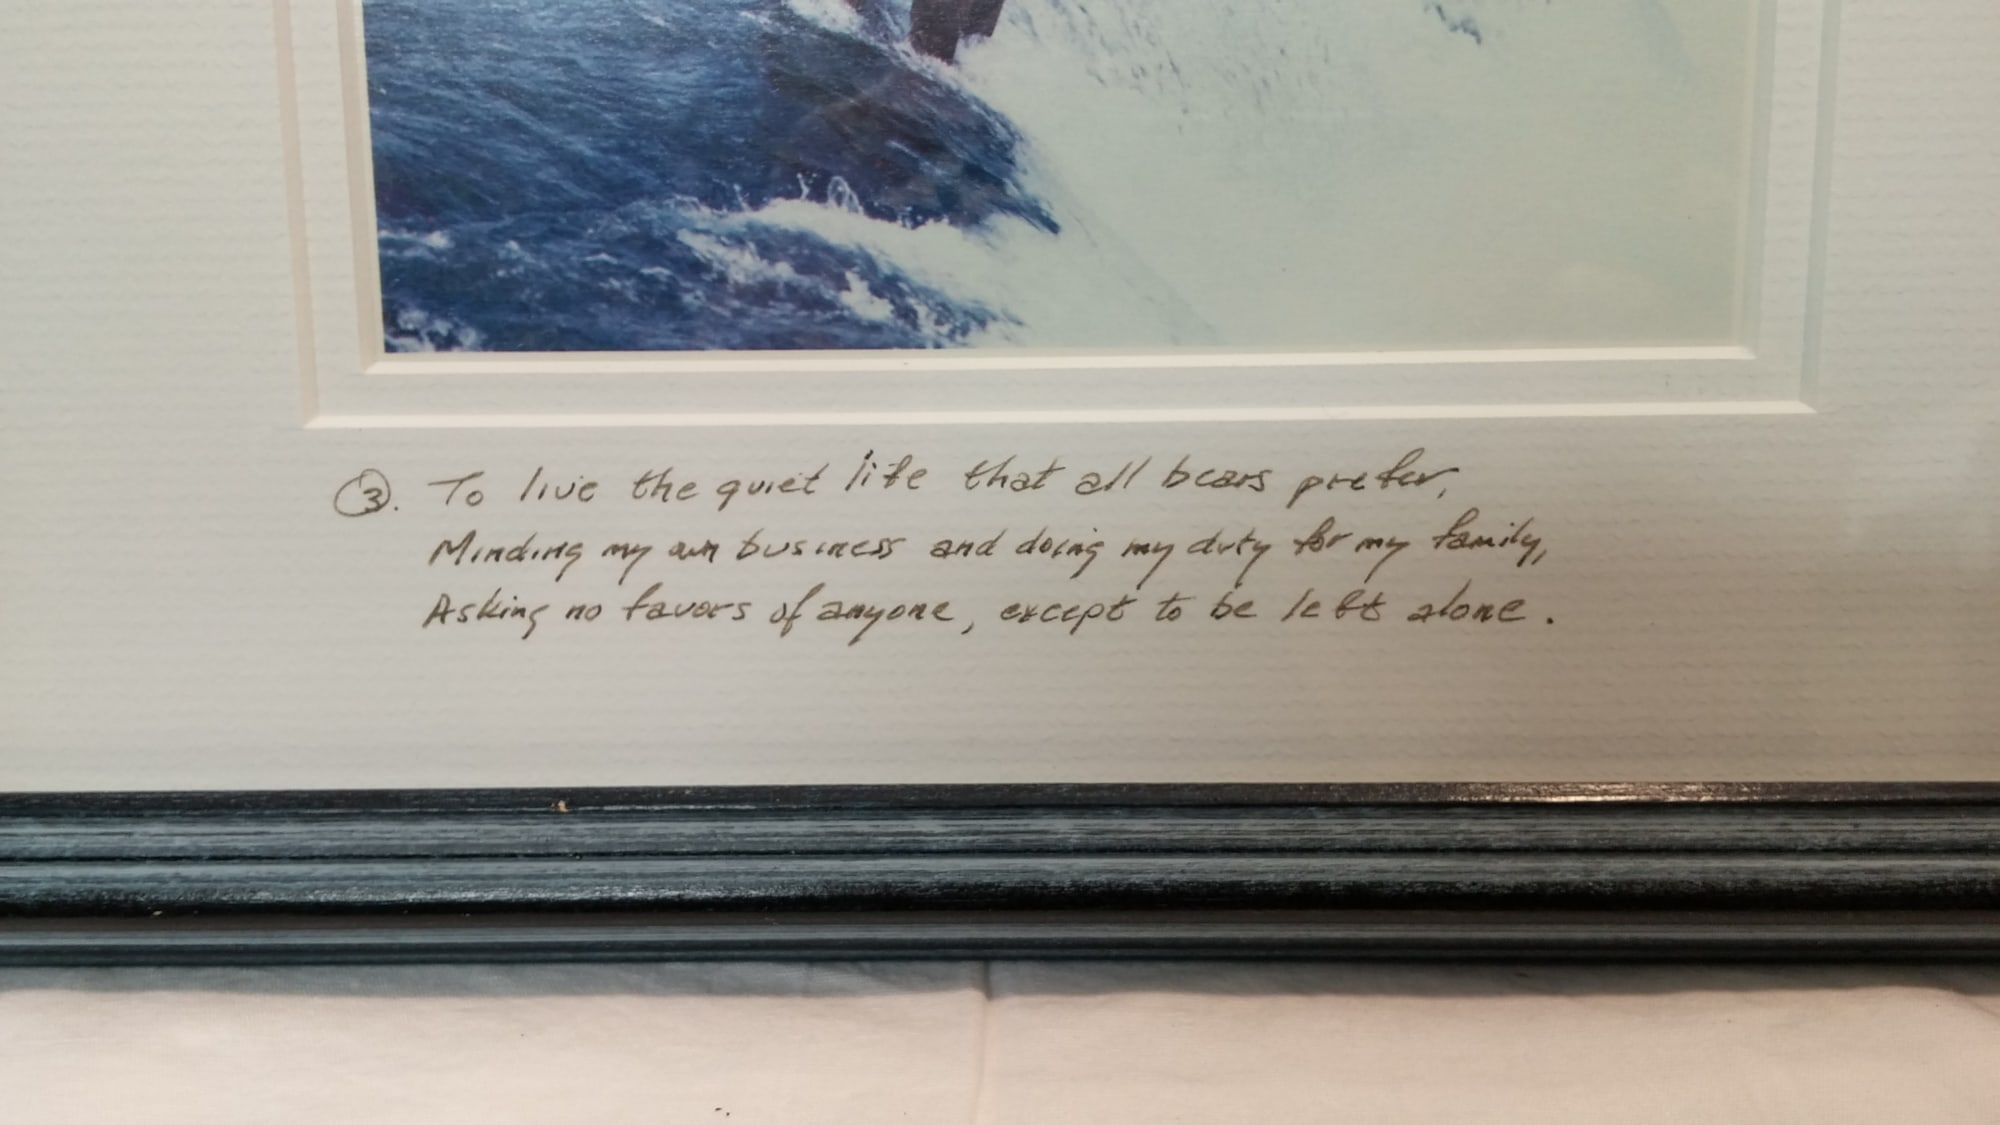 ③. To live the quiet life that all bears prefer,
Minding my own business and doing my duty for my family,
Asking no favors of anyone, except to be left alone.